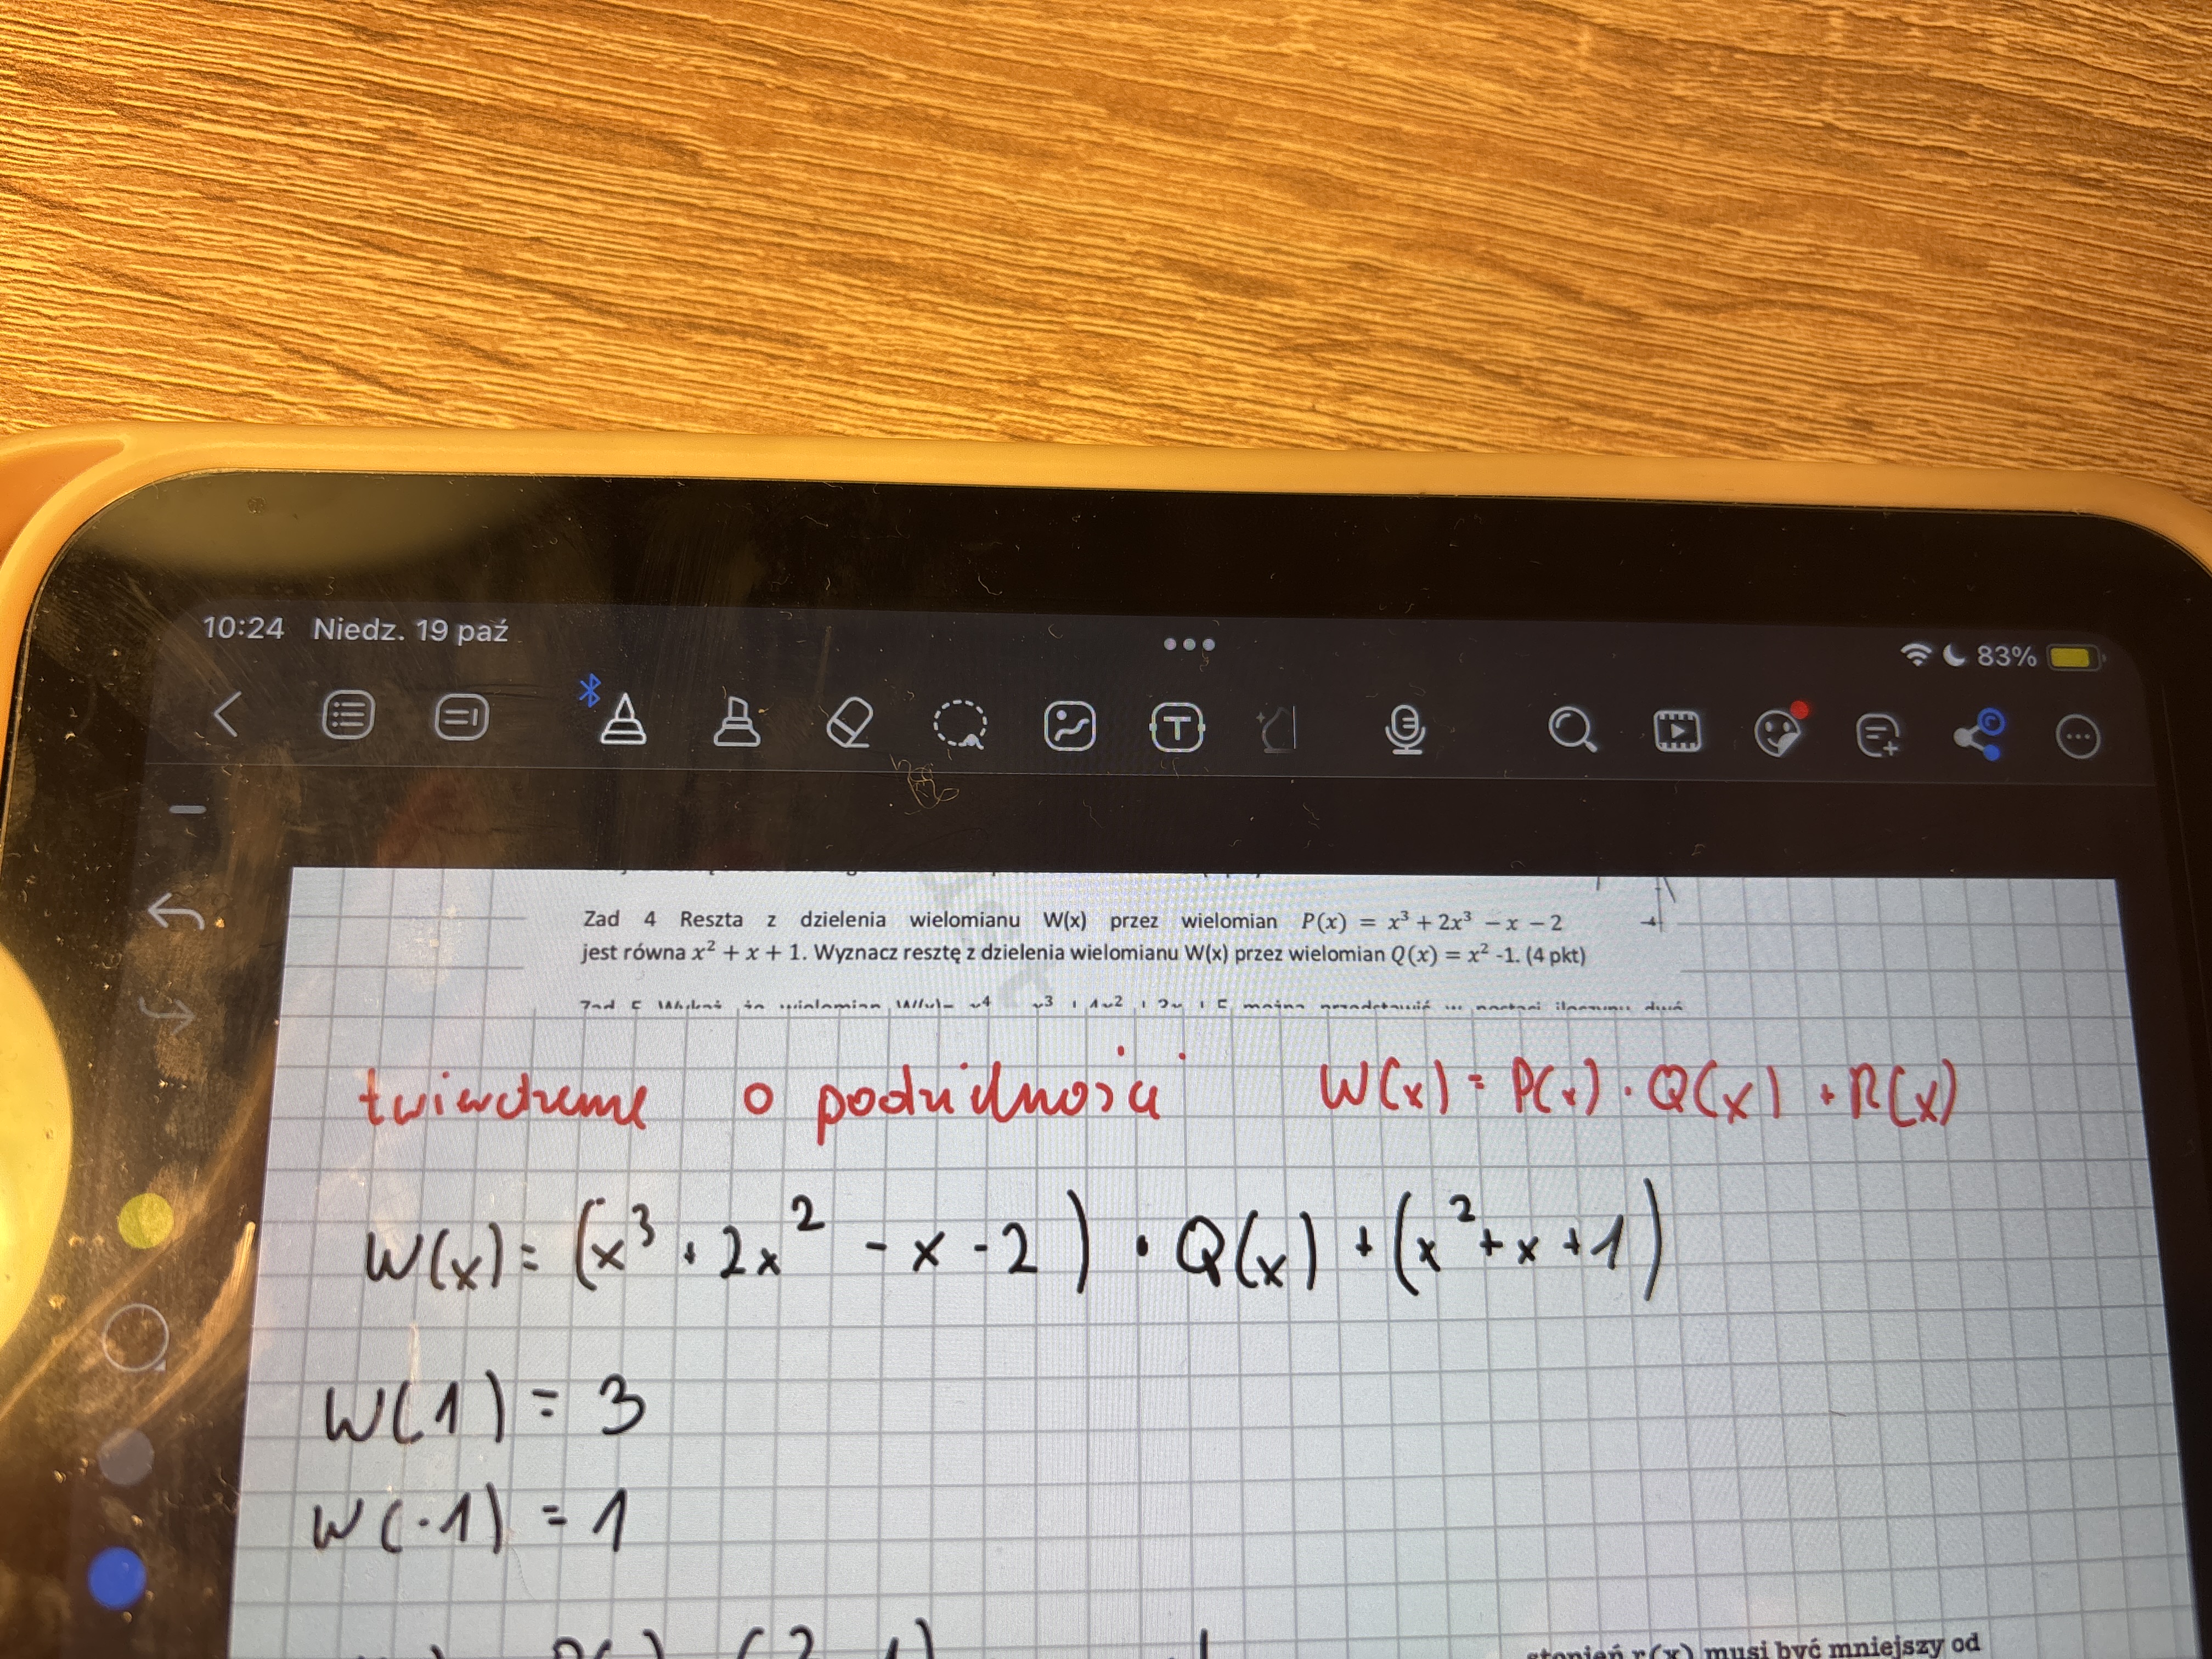 10:24 Niedz. 19 paź
83%
Zad 4 Reszta z dzielenia wielomianu W(x) przez wielomian P(x) = x³ + 2x³ − x − 2
jest równa x² + x + 1. Wyznacz resztę z dzielenia wielomianu W(x) przez wielomian Q(x) = x² -1. (4 pkt)
Zad 5 Wykaż, że wielomian
można przedstawić w postaci iloczynu dwó
twierdzenie o podzielności W(x) = P(x) · Q(x) + R(x)
W(x) = (x³ + 2x² - x - 2) · Q(x) + (x² + x + 1)
W(1) = 3
W(-1) = 1
stopień r(x) musi być mniejszy od